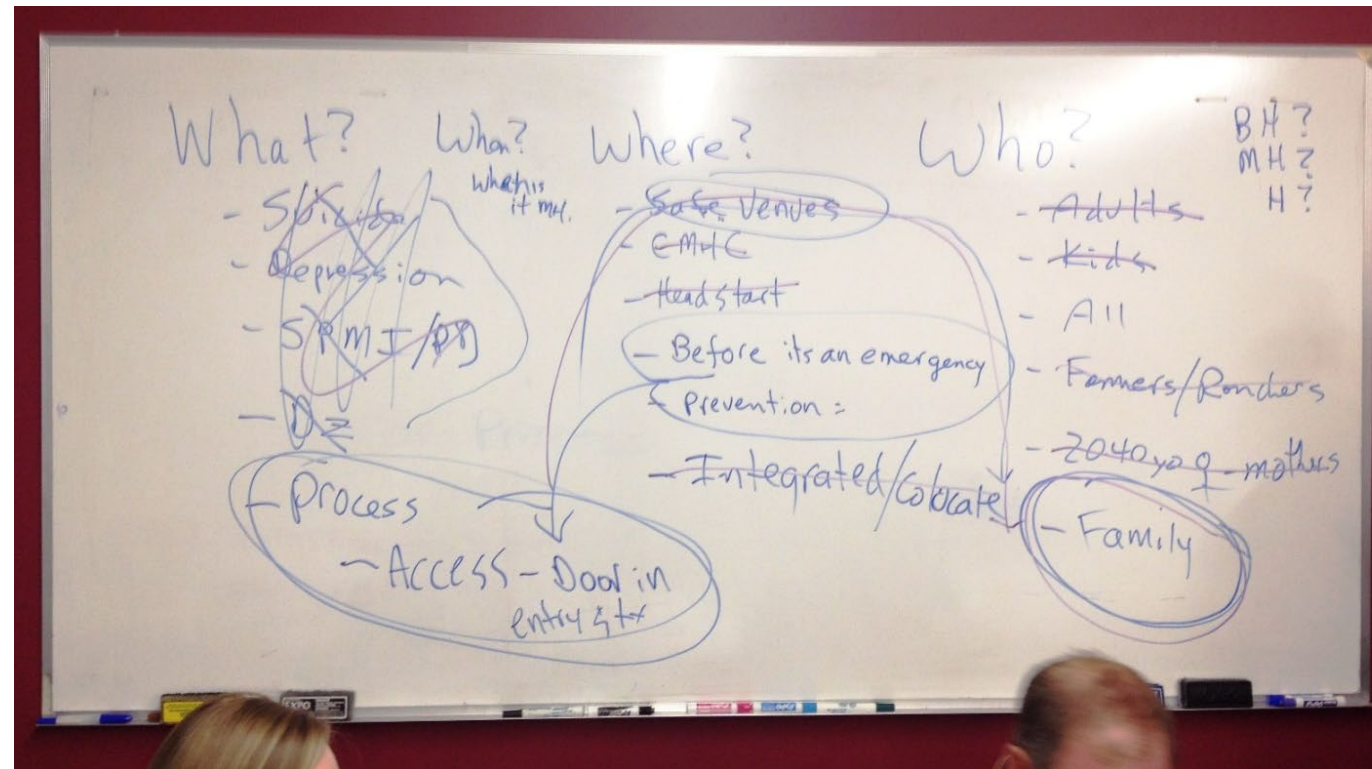 What?
- Suicide
- Depression
- SPMI/PD
- Dz
- Process
- Access - Door in
entry & tx
When?
When is
it MH.
Where?
- Safe Venues
- CMHC
- Head start
- Before its an emergency
- Prevention =
- Integrated/Colocate
Who?
- Adults
- Kids
- All
- Farmers/Ranchers
- 2040 yo ♀ - mothers
- Family
BH?
MH?
H?
EXPO